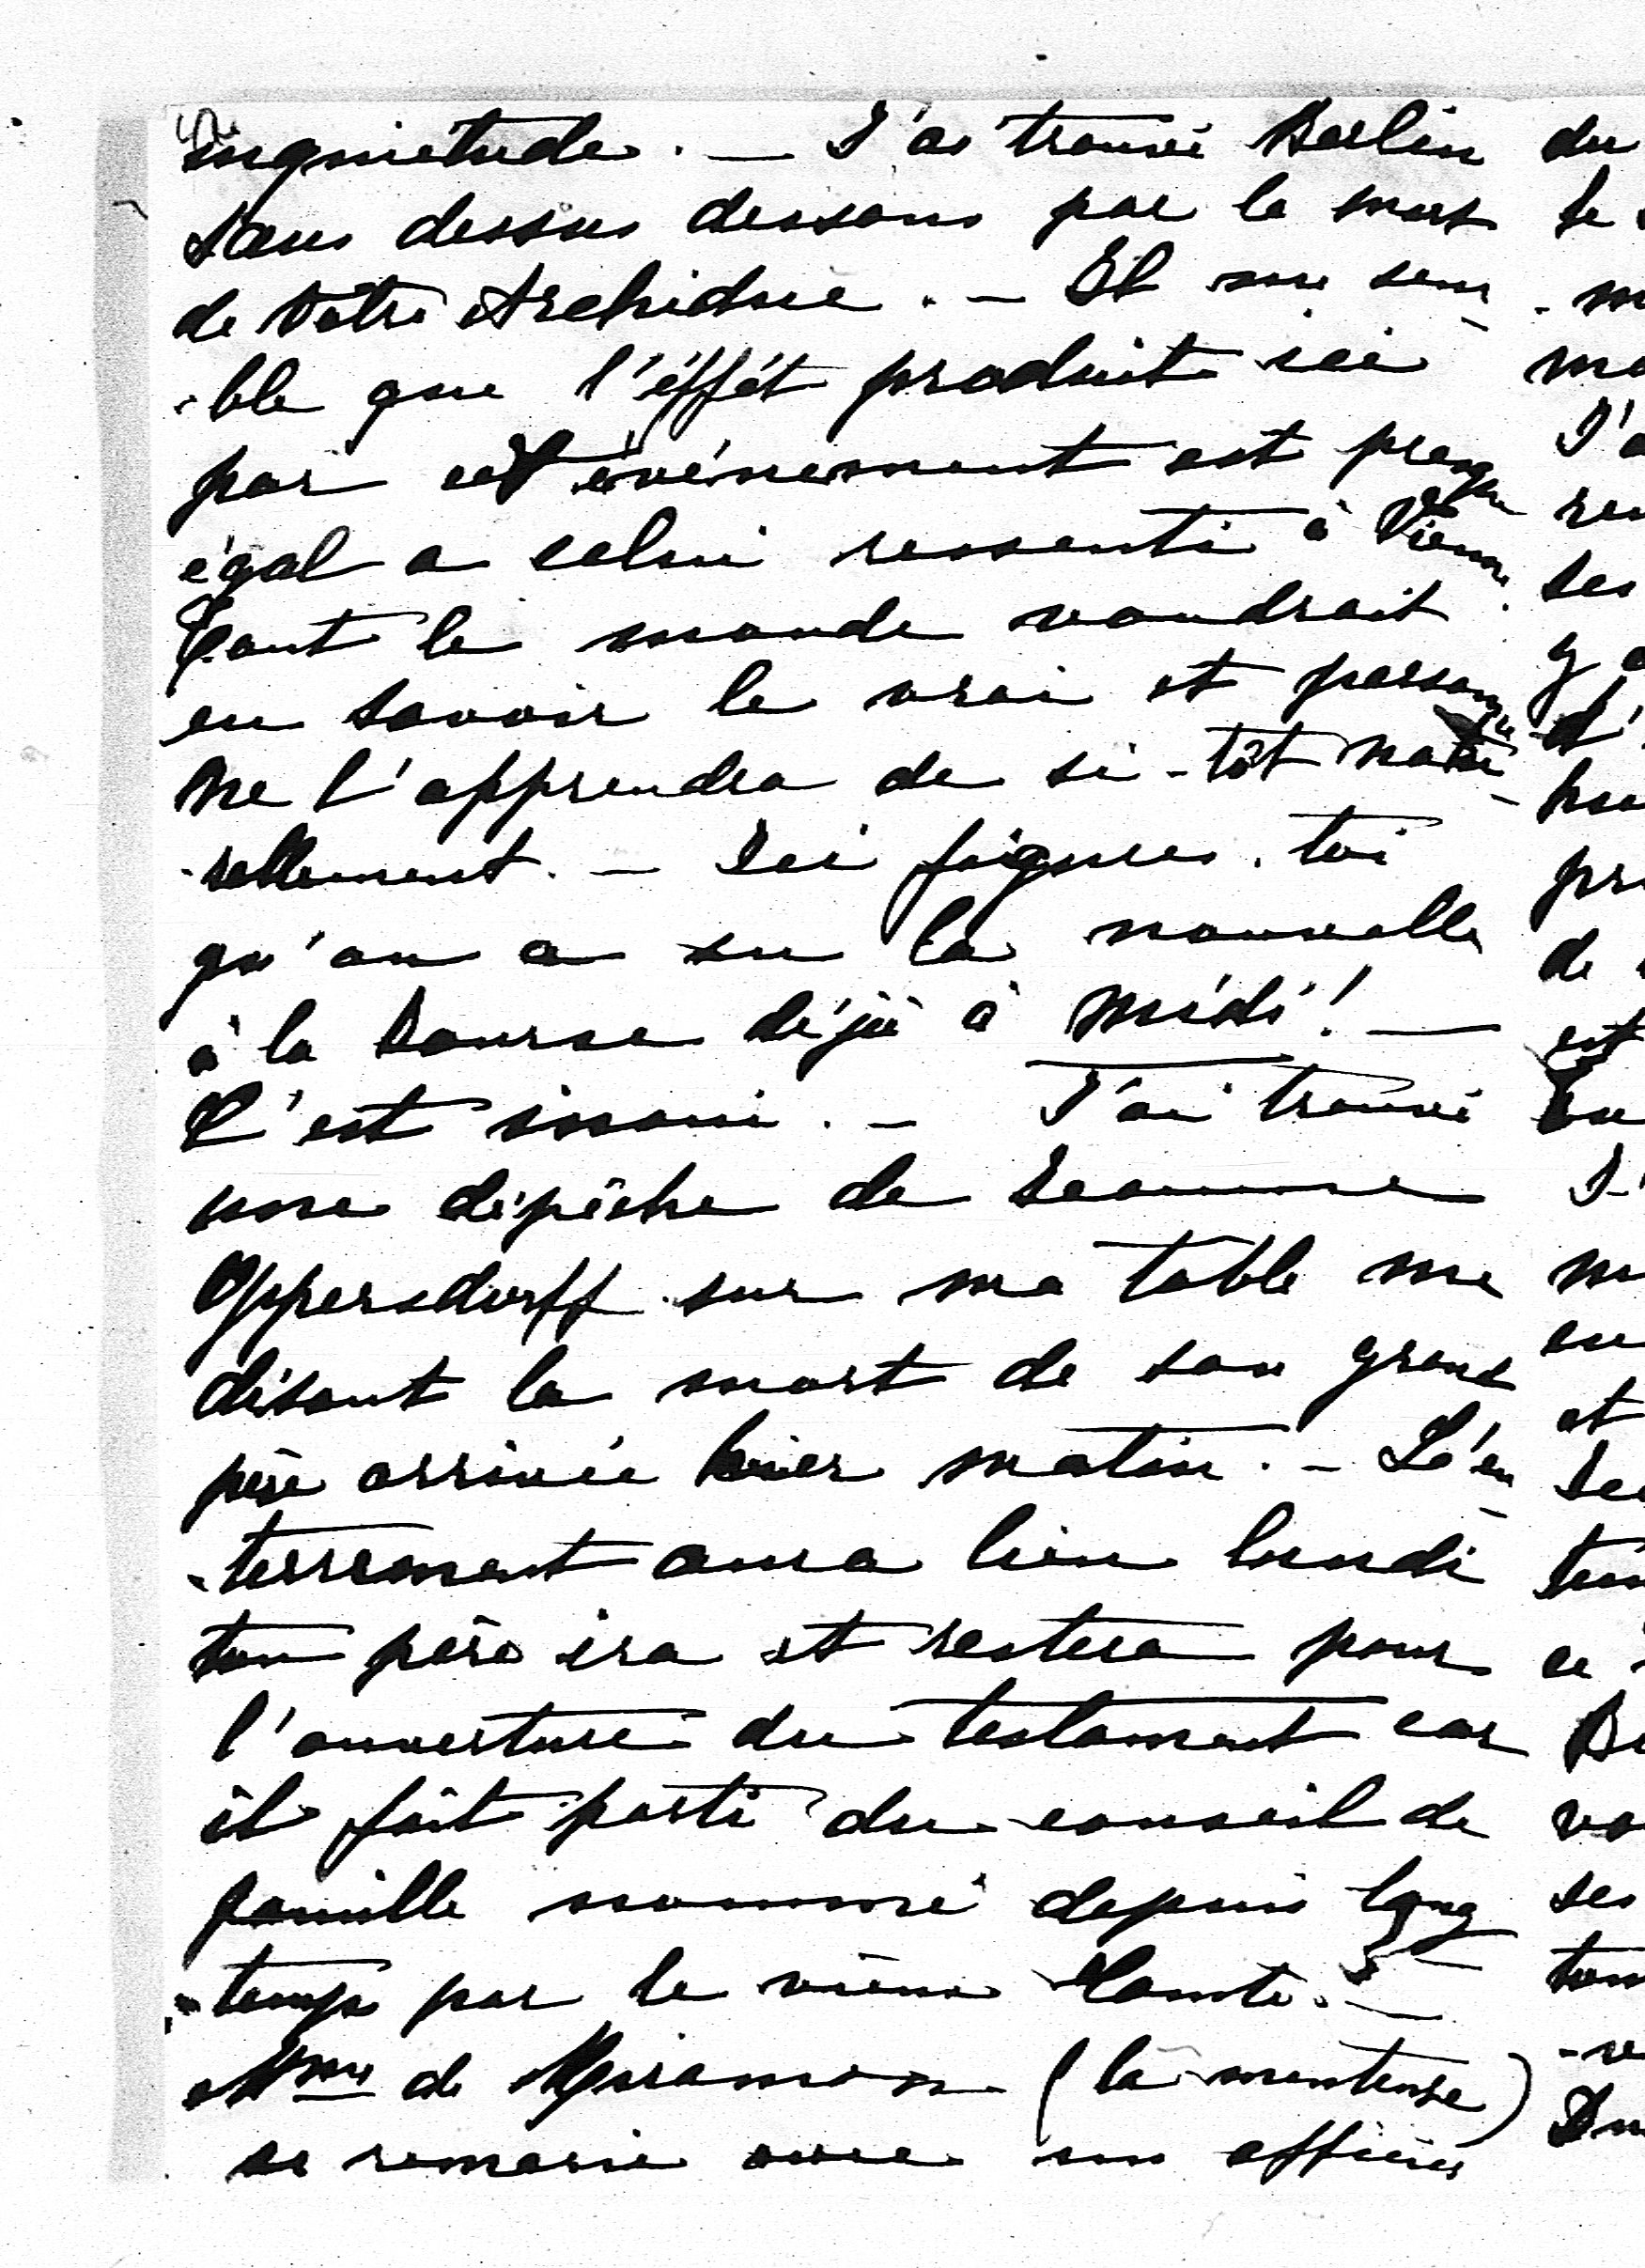 inquiètude. — J'ai trouvé Berlin
sans dessus dessous par la mort
de Vôtre Archiduc. — Il me sem-
-ble que l'éffét produit ici
par cet événement est presque
égal a celui ressenti à Vienne.
Tout le monde voudrait
en savoir le vrai et personne
ne l'apprendra de si-tôt natu-
-rellement. — Ici figures-toi
qu'on a su la nouvelle
à la Bourse déjà à Midi! —
C'est inoui. — J'ai trouvé
une dépêche de Jeanne
Oppersdorff sur ma table me
disant la mort de son grand
père arrivée hier matin. — L'en-
-terrement aura lieu lundi
ton père ira et restera pour
l'ouverture du testament car
il fait parti du conseil de
famille nommé depuis long
-temps par le vieux Comte. —
Mme de Miramon (la menteuse)
se remarie avec un officier
du
le
m
ma
J'a
ses
y a
d'
pr
de
est
J'
en
et
ce
vo
ses